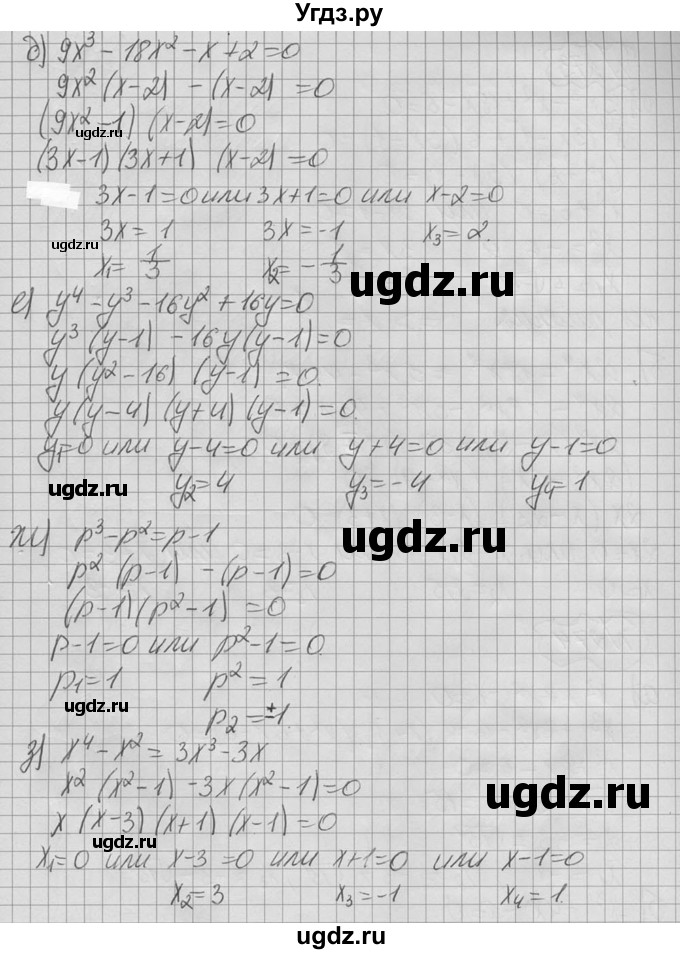 Угдз.ру
д) 9x³ - 18x² - x + 2 = 0
9x² (x-2) - (x-2) = 0
(9x² - 1) (x-2) = 0
ugdz.ru
(3x-1) (3x+1) (x-2) = 0
3x-1=0 или 3x+1=0 или x-2=0
3x = 1 3x = -1 x₃ = 2.
ugdz.ru
x₁ = 1/3 x₂ = -1/3
ugdz.ru
е) y⁴ - y³ - 16y² + 16y = 0
y³ (y-1) - 16y (y-1) = 0
y (y² - 16) (y-1) = 0.
y (y-4) (y+4) (y-1) = 0.
y₁=0 или y-4=0 или y+4=0 или y-1=0
ugdz.ru
y₂ = 4 y₃ = -4 y₄ = 1
ж) p³ - p² = p - 1
ugdz.ru
p² (p-1) - (p-1) = 0
(p-1) (p² - 1) = 0
p-1=0 или p²-1=0.
p₁ = 1 p² = 1
ugdz.ru
p₂ = ±1.
з) x⁴ - x² = 3x³ - 3x
x² (x²-1) - 3x (x²-1) = 0
ugdz.ru
ugdz.ru
x (x-3) (x+1) (x-1) = 0
x₁=0 или x-3=0 или x+1=0 или x-1=0
x₂ = 3 x₃ = -1 x₄ = 1.
ugdz.ru